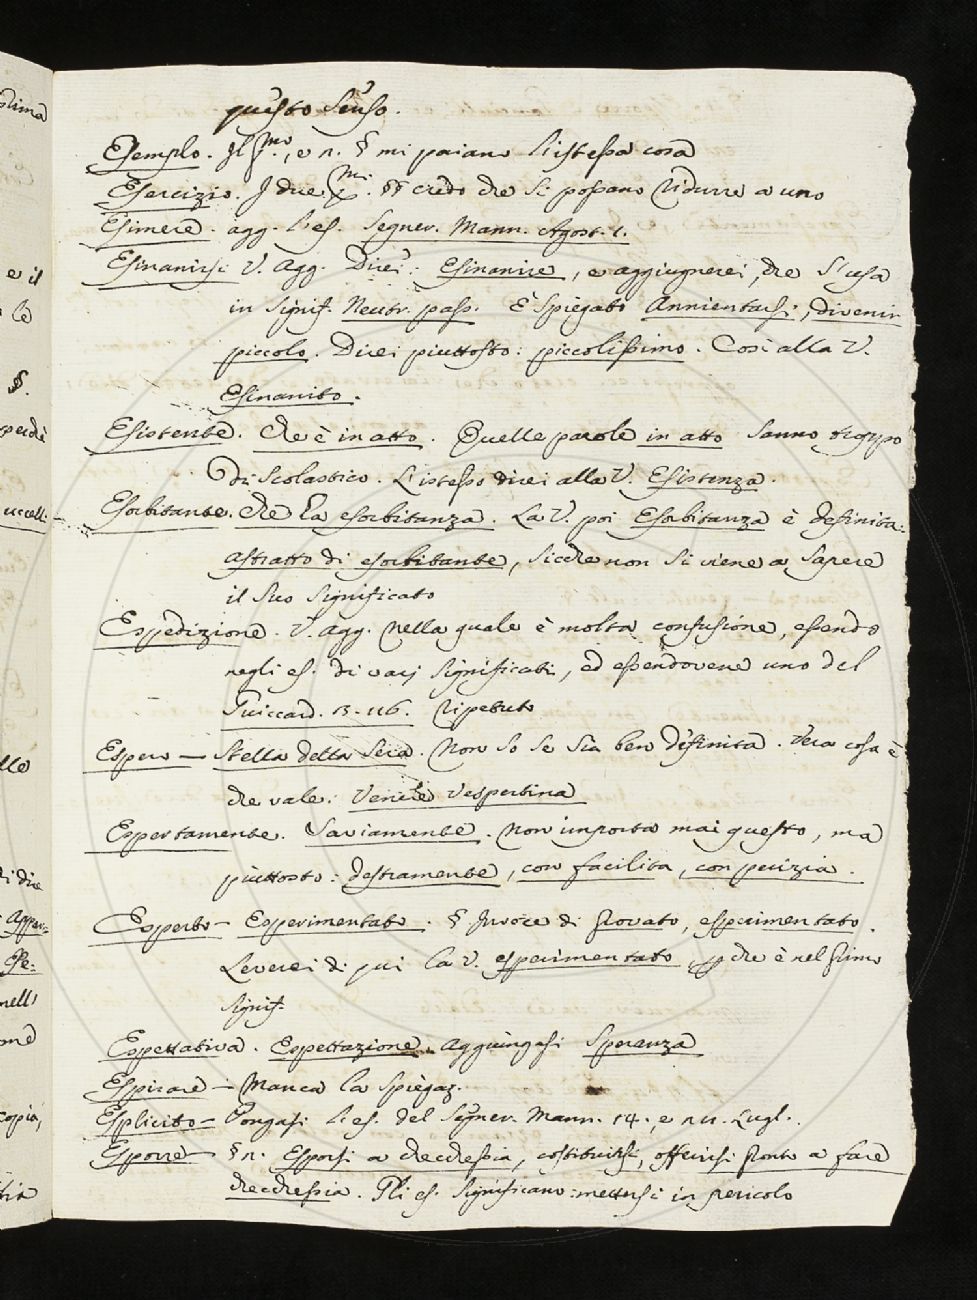 questo senso.
Esempio. Il p.mo, e n. § mi paiano l'istessa cosa
Esercizio. I due p.mi §§ credo che si possano ridurre a uno
Esimere. agg. l'es. Segner. Mann. Agost. 1.
Esinanirsi V. Agg. Direi: Esinanire, e aggiugnerei, che s'usa
in signif. Neutr. pass. È spiegato Annientarsi, divenir
piccolo. Direi piuttosto: piccolissimo. Così alla V.
Esinanito.
Esistente. Che è in atto. Quelle parole in atto sanno troppo
di Scolastico. L'istesso direi alla V. Esistenza.
Esorbitante. Che ha esorbitanza. La V. poi Esorbitanza è definita:
astratto di esorbitante, sicche non si viene a sapere
il suo significato
Espedizione. V. agg. nella quale è molta confusione, essendo
negli es. di varj significati, ed essendovene uno del
Guicciard. 13. 116. ripetuto
Espero — Stella della sera. Non so se sia ben definita. Vera cosa è
che vale: Venere Vespertina
Espertamente. Saviamente. Non importa mai questo, ma
piuttosto: destramente, con facilità, con perizia.
Esperto — Esperimentato. § In voce di provato, esperimentato.
Leverei di qui la V. esperimentato, che è nel primo
signif.
Espettativa. Espettazione. Aggiungasi Speranza
Espirare — Manca la spiegaz.
Esplicito — Pongasi l'es. del Segner. Mann. 14., e Lugl.
Esporre — § n. Esporsi a checchessia, costituirsi, offerirsi pronto a fare
checchessia. Gli es. significano: mettersi in pericolo
e il
§.
perchè
uccell:
di che
nell'
copia,